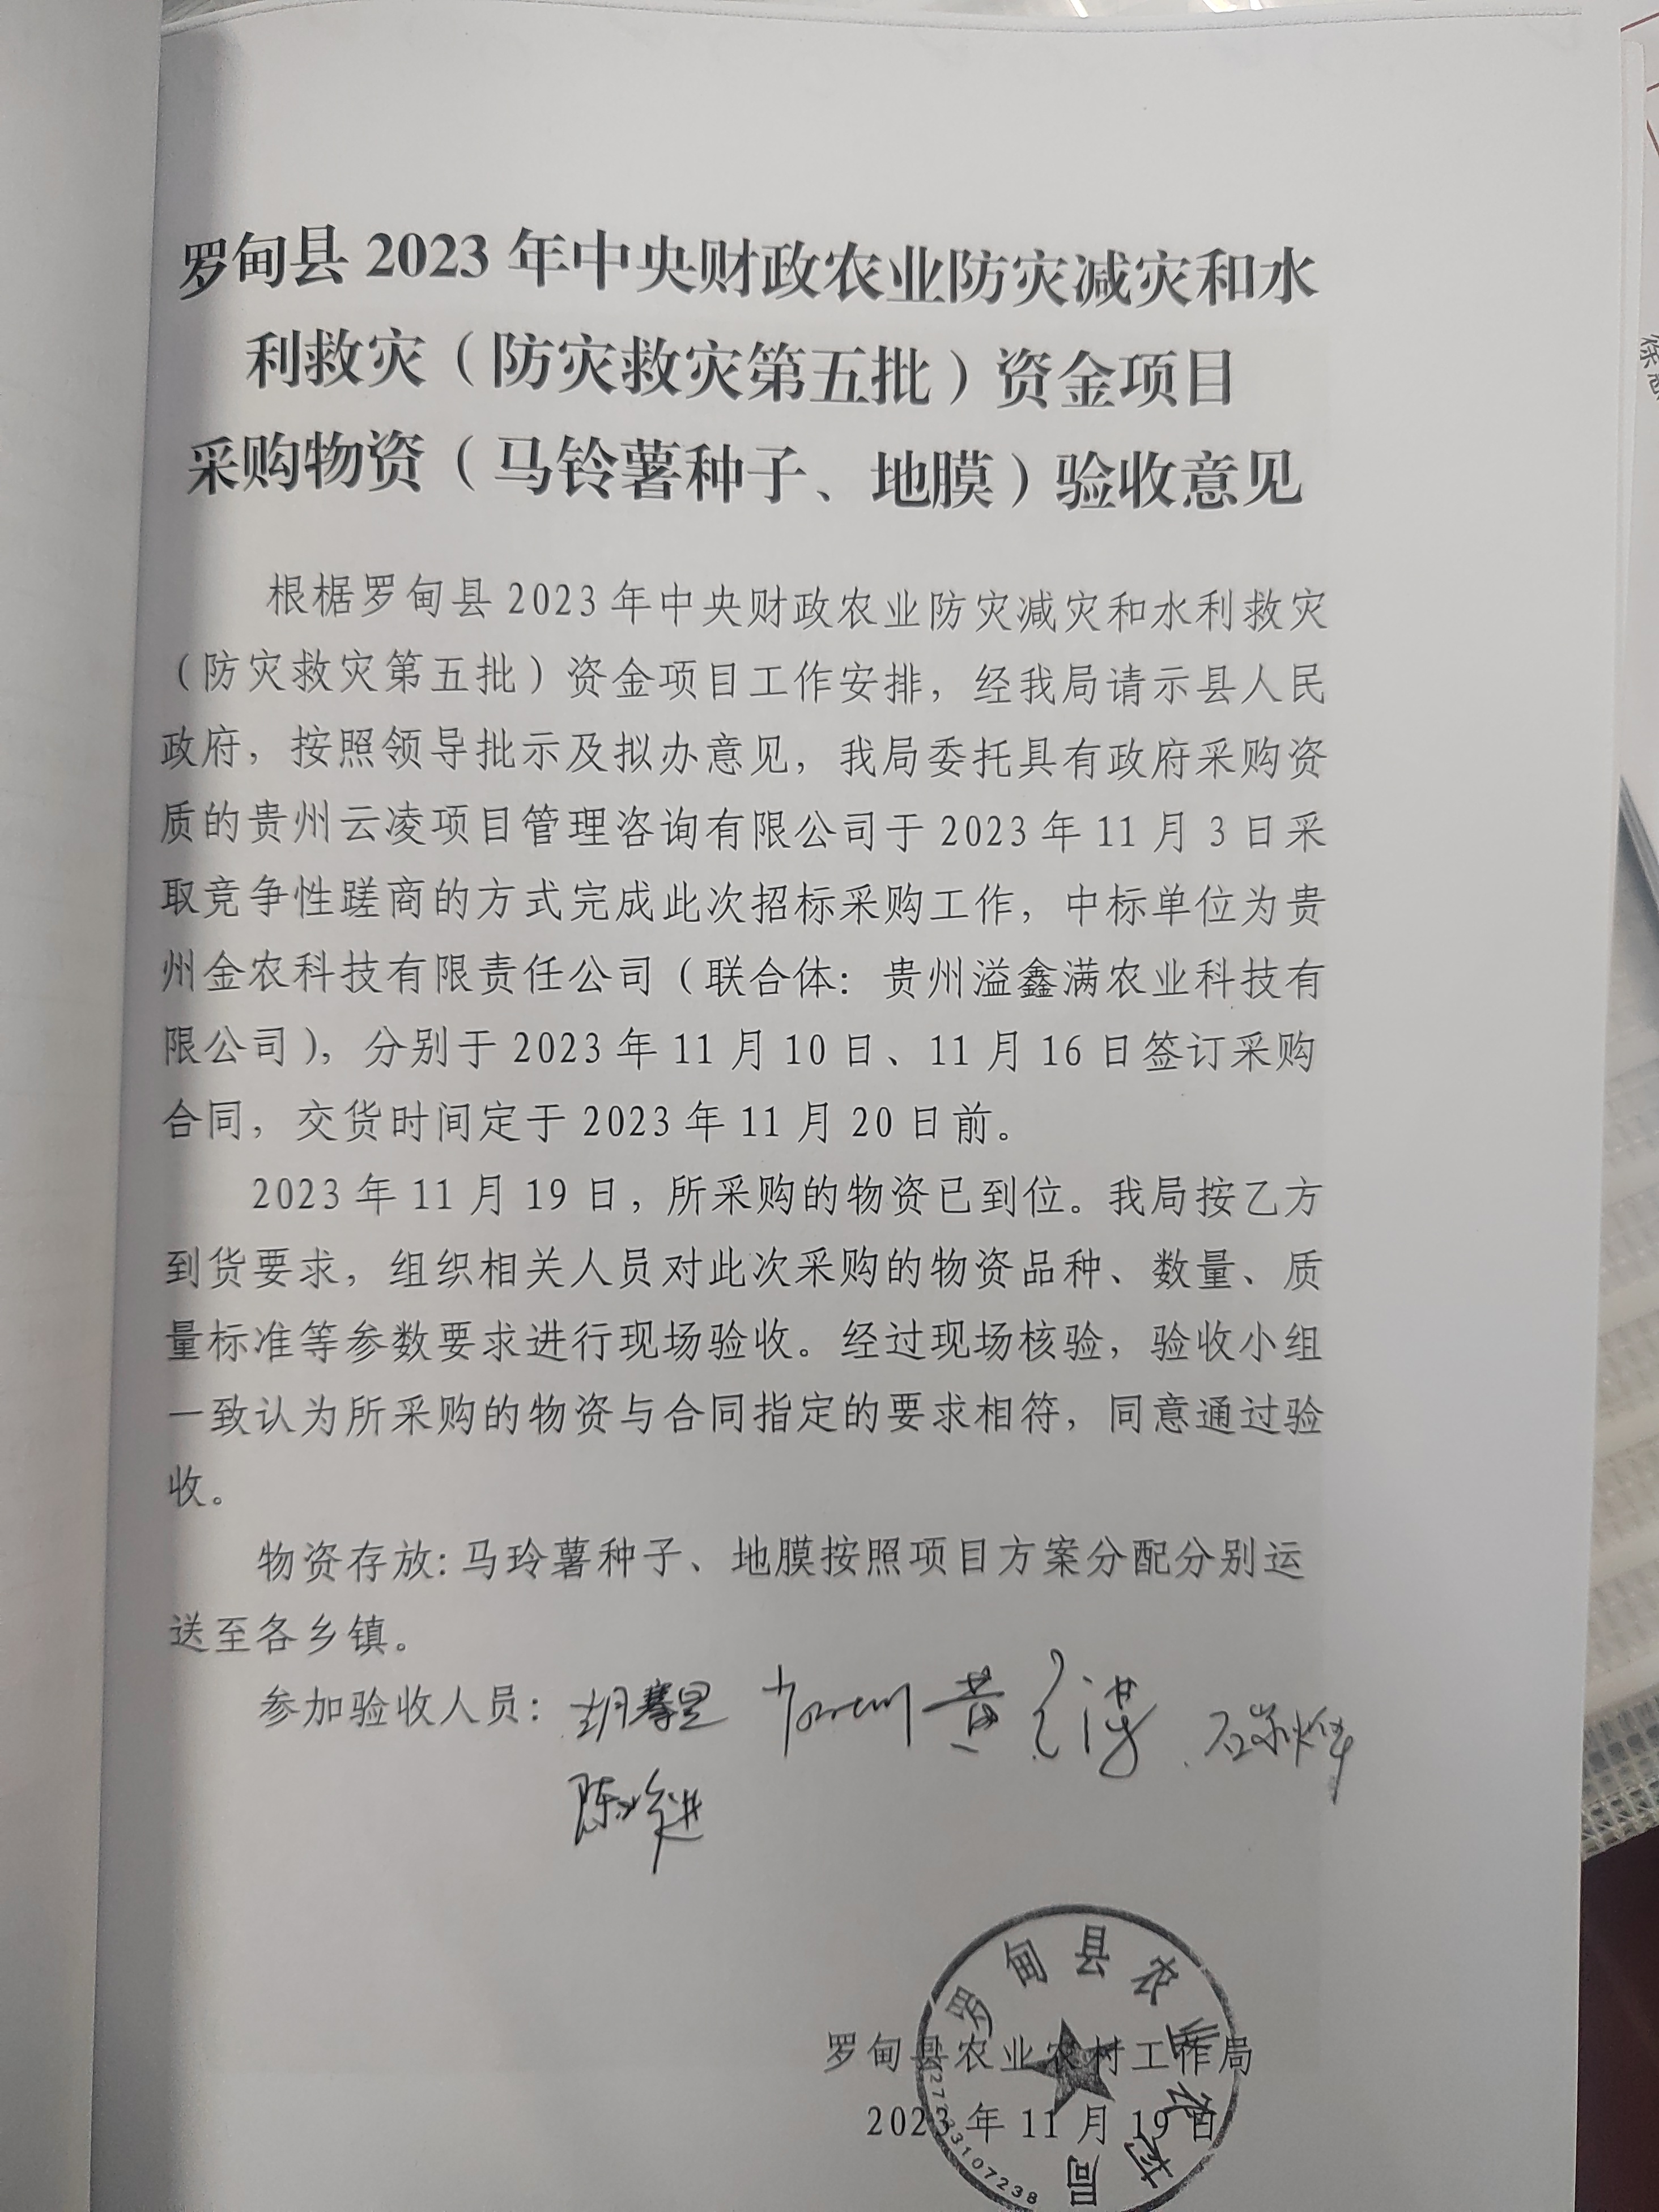 罗甸县 2023 年中央财政农业防灾减灾和水
利救灾（防灾救灾第五批）资金项目
采购物资（马铃薯种子、地膜）验收意见
根椐罗甸县 2023 年中央财政农业防灾减灾和水利救灾
（防灾救灾第五批）资金项目工作安排，经我局请示县人民
政府，按照领导批示及拟办意见，我局委托具有政府采购资
质的贵州云凌项目管理咨询有限公司于 2023 年 11 月 3 日采
取竞争性蹉商的方式完成此次招标采购工作，中标单位为贵
州金农科技有限责任公司（联合体：贵州溢鑫满农业科技有
限公司），分别于 2023 年 11 月 10 日、11 月 16 日签订采购
合同，交货时间定于 2023 年 11 月 20 日前。
2023 年 11 月 19 日，所采购的物资已到位。我局按乙方
到货要求，组织相关人员对此次采购的物资品种、数量、质
量标准等参数要求进行现场验收。经过现场核验，验收小组
一致认为所采购的物资与合同指定的要求相符，同意通过验
收。
物资存放：马玲薯种子、地膜按照项目方案分配分别运
送至各乡镇。
参加验收人员：
罗甸县农业农村局
罗甸县农业农村工作局
2023 年 11 月 19 日